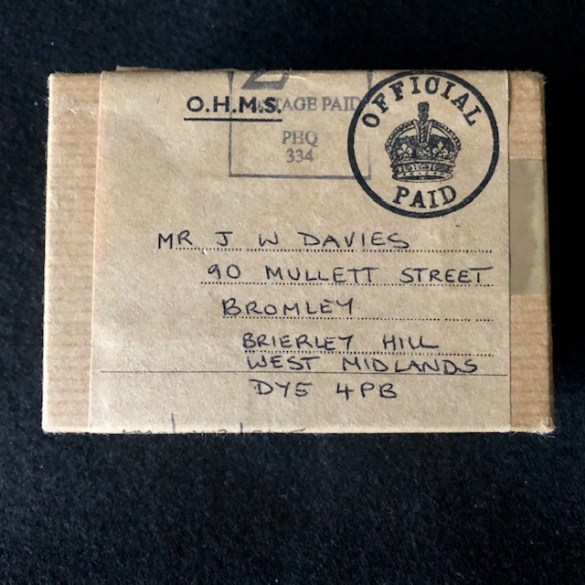 2
POSTAGE PAID
PHQ
334
O.H.M.S.
OFFICIAL
PAID
MR J W DAVIES
90 MULLETT STREET
BROMLEY
BRIERLEY HILL
WEST MIDLANDS
DY5 4PB